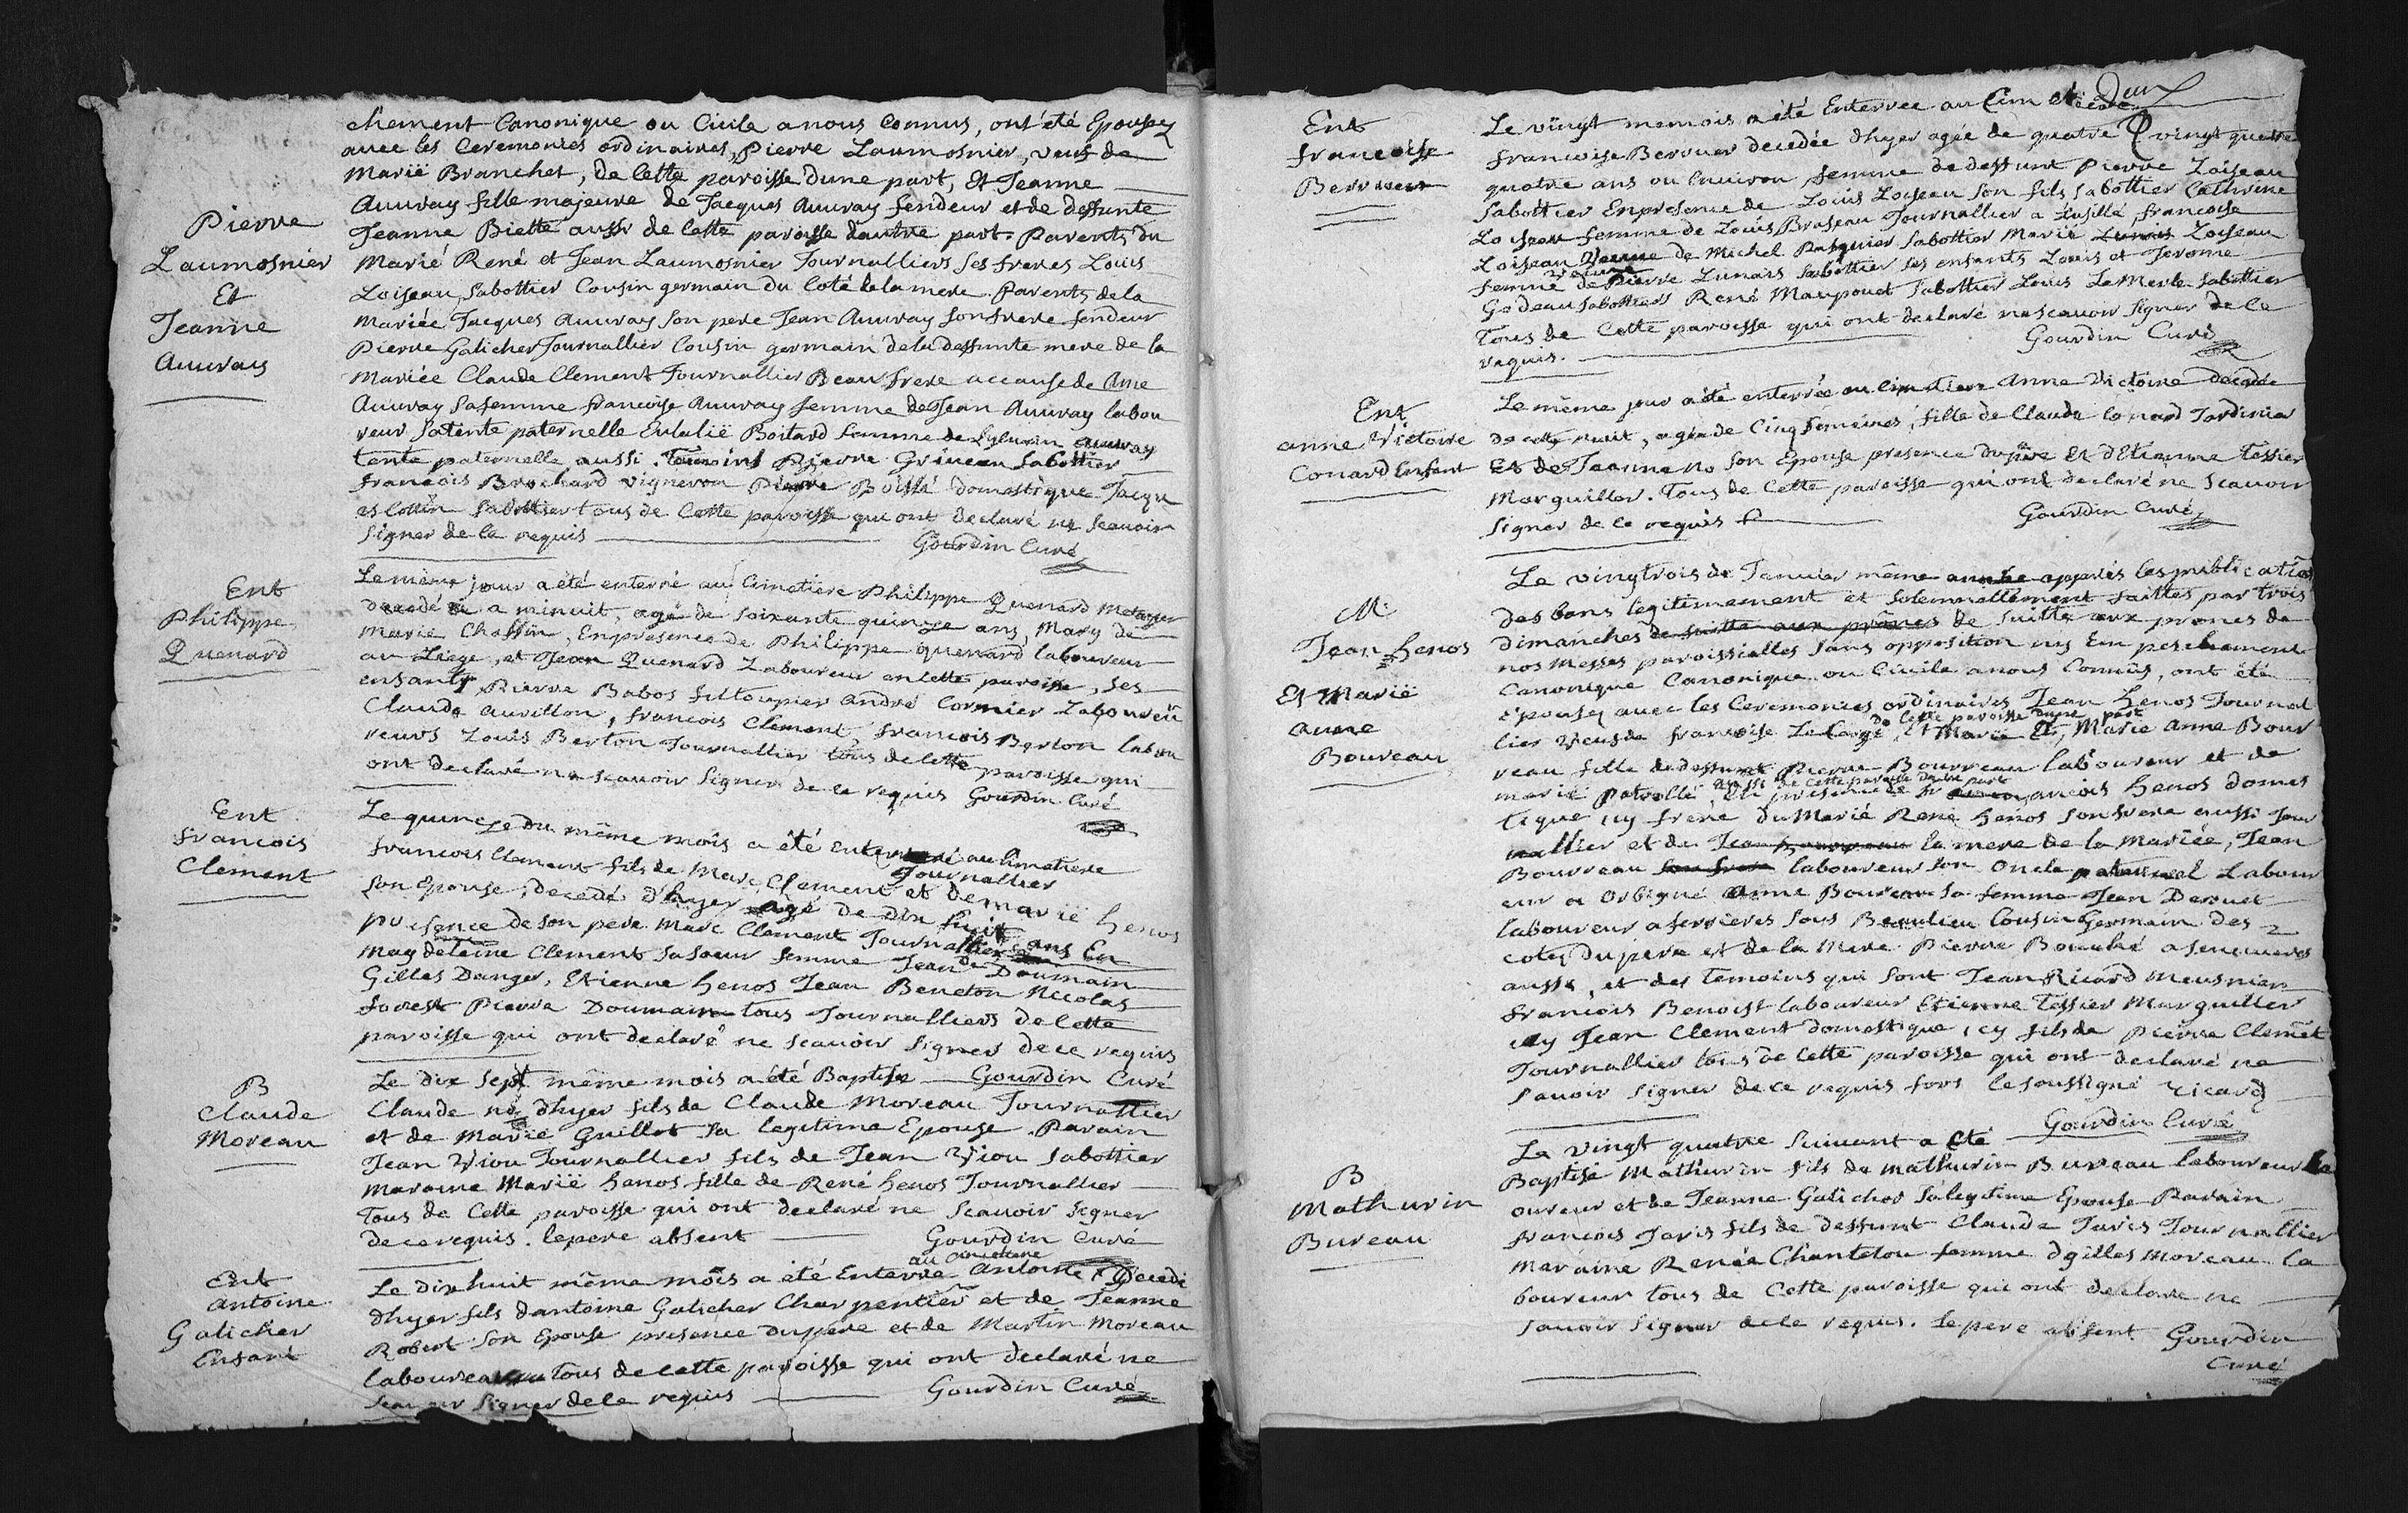 chement Canonique ou Civile a nous Connus, ont été Epousez
avec les Ceremonies ordinaires, Pierre Laumosnier, veuf de
Marië Branchet, de Cette paroisse d'une part, Et Jeanne
Auuray fille majeure de Jacques Auuray fendeur et de deffunte
Jeanne Biette aussi de Cette paroisse d'autre part. Parents du
Marié René et Jean Laumosnier Journalliers ses freres Louis
Loiseau, Sabottier Cousin germain du Coté de la mere. Parents de la
Mariée Jacques Auuray son pere Jean Auuray son frere fendeur
Pierre Galicher Journallier Cousin germain de la deffunte mere de la
Mariée Claude Clement Journallier Beaufrere a cause de Ane
Auuray sa femme francoise Auuray femme de Jean Auuray labou
reur sa tente paternelle Eulalië Boitard femme de auuray
tente paternelle aussi. Temoins Pierre Griueau Sabottier
francois Brochard vigneron Pierre Boissé domestique Jacqu
es Cottin Sabottier tous de Cette paroisse qui ont declaré ne Scauoir
Signer de Ce requis
Gourdin Curé
Pierre
Laumosnier
Et
Jeanne
Auuray
Ent
Philippe
Quenard
Le même jour a été enterré au Cimetiere Philippe Quenard Metayer
decedé a minuit, agé de soixante quinze ans, Mary de
Marie Chaffin, En presence de Philippe quenard laboureur
au Liege, et Jean Quenard Laboureur en Cette paroisse, ses
enfants Pierre Babos filtoupier André Cormier Laboureu
Claude Aurillon, francois Clement, francois Berton labou
reurs Louis Berton Journallier tous de Cette paroisse qui
ont declaré ne scauoir Signer de ce requis Gourdin Curé
Ent
francois
Clement
Le quinze du même mois a été enterré au Cimetiere
francois Clement fils de Marc Clement Journallier et de marië henos
son Epouse, decedé d'hyer agé de dix huit ans En
presence de son pere Marc Clement Journallier
Magdeleine Clement sa soeur femme de Jean Doumain
Gilles Danger, Etienne henos Jean Beneton Nicolas
forest Pierre Doumain tous Journalliers de Cette
paroisse qui ont declaré ne scauoir signer de ce requis
Gourdin Curé
B
Claude
Moreau
Le dix sept même mois a été Baptisé
Claude né d'hyer fils de Claude Moreau Journallier
et de Marië Guillot sa legitime Epouse. Parain
Jean Viou Journallier fils de Jean Viou Sabottier
Maraine Marië henos fille de René henos Journallier
Tous de Cette paroisse qui ont declaré ne Scauoir Signer
de ce requis. le pere absent
Gourdin Curé
Ent
antoine
Galicher
Enfant
Le dix huit même mois a été Enterré au cimetiere antoine Decedé
d'hyer fils d'antoine Galicher Charpentier et de Jeanne
Robert son Epouse presence du pere et de Martin Moreau
laboureur tous de cette paroisse qui ont declaré ne
Scauoir Signer de Ce requis
Gourdin Curé
Deux
Ent
francoise
Berruer
Le vingt meme mois a été Enterrée au Cimetiere
francoise Berruer decedée d'hyer agée de quatre vingt quatre
quatre ans ou Enuiron, femme de deffunt Pierre Loiseau
Sabottier En presence de Louis Loiseau son fils sabottier Cathrine
Loiseau femme de Louis Braseau Journallier a Lusillé, francoise
Loiseau veuve de Michel Pasquier Sabottier Marië Lunais Loiseau
femme de Pierre Lunais Sabottier ses enfants Louis et Jerome
Godeau sabottiers René Maupouet Sabottier Louis Le Merle Sabottier
Tous de Cette paroisse qui ont declaré ne scauoir signer de Ce
requis.
Gourdin Curé
Ent
anne Victoire
Conard Enfant
Le même jour a été enterrée au Cimetiere Anne Victoire decedée
de cette nuit, agée de Cinq semeines, fille de Claude Conard Jardinier
Et de Jeanne no son Epouse presence du pere Et d'Etienne Tessier
Marguiller. Tous de Cette paroisse qui ont declaré ne Scauoir
Signer de ce requis
Gourdin Curé
M.
Jean henos
Et Marië
Anne
Boureau
Le vingtrois de Januier même année apprés les publications
des bans legitimement et solemnellement faittes par trois
dimanches de suitte aux prônes de suitte aux prones de
nos Messes paroissialles sans opposition ny Empeschement
Canonique Canonique ou Ciuile a nous Connûs, ont été
épousez auec les Ceremonies ordinaires Jean henos Journal
lier veuf de francoise de Cette paroisse d'une part Et Marie Anne Bour
reau fille de deffunt Pierre Bourreau laboureur et de
marie aussi de Cette paroisse d'autre part, En presence de francois henos domes
tique icy frere du Marié René henos son frere aussi Jour
nallier et de la mere de la Mariée, Jean
Bourreau laboureur son Oncle paternel Labour
eur a Orbigné Anne Boureau sa femme Jean Derouet
laboureur a ferrieres sous Beaulieu Cousin Germain des 2
cotez du pere et de la Mere Pierre Bouché a senneuieres
aussi, et des temoins qui sont Jean Ricard Meusnier
francois Benoist laboureur Etienne Tessier Marguiller
icy Jean Clement domestique icy fils de Pierre Clemet
Journallier tous de Cette paroisse qui ont declaré ne
sauoir signer de ce requis fors le soussigné Ricard
Gourdin Curé
B
Mathurin
Bureau
Le vingt quatre suiuant a été
Baptisé Mathurin fils de mathurin Bureau laboureur
oureur et de Jeanne Galicher sa legitime Epouse Parain
francois Jaris fils de deffunt Claude Jaris Journallier
Maraine Renée Chantelou femme d gilles Moreau la
boureur tous de Cette paroisse qui ont declaré ne
sauoir signer de ce requis. le pere absent. Gourdin
Curé